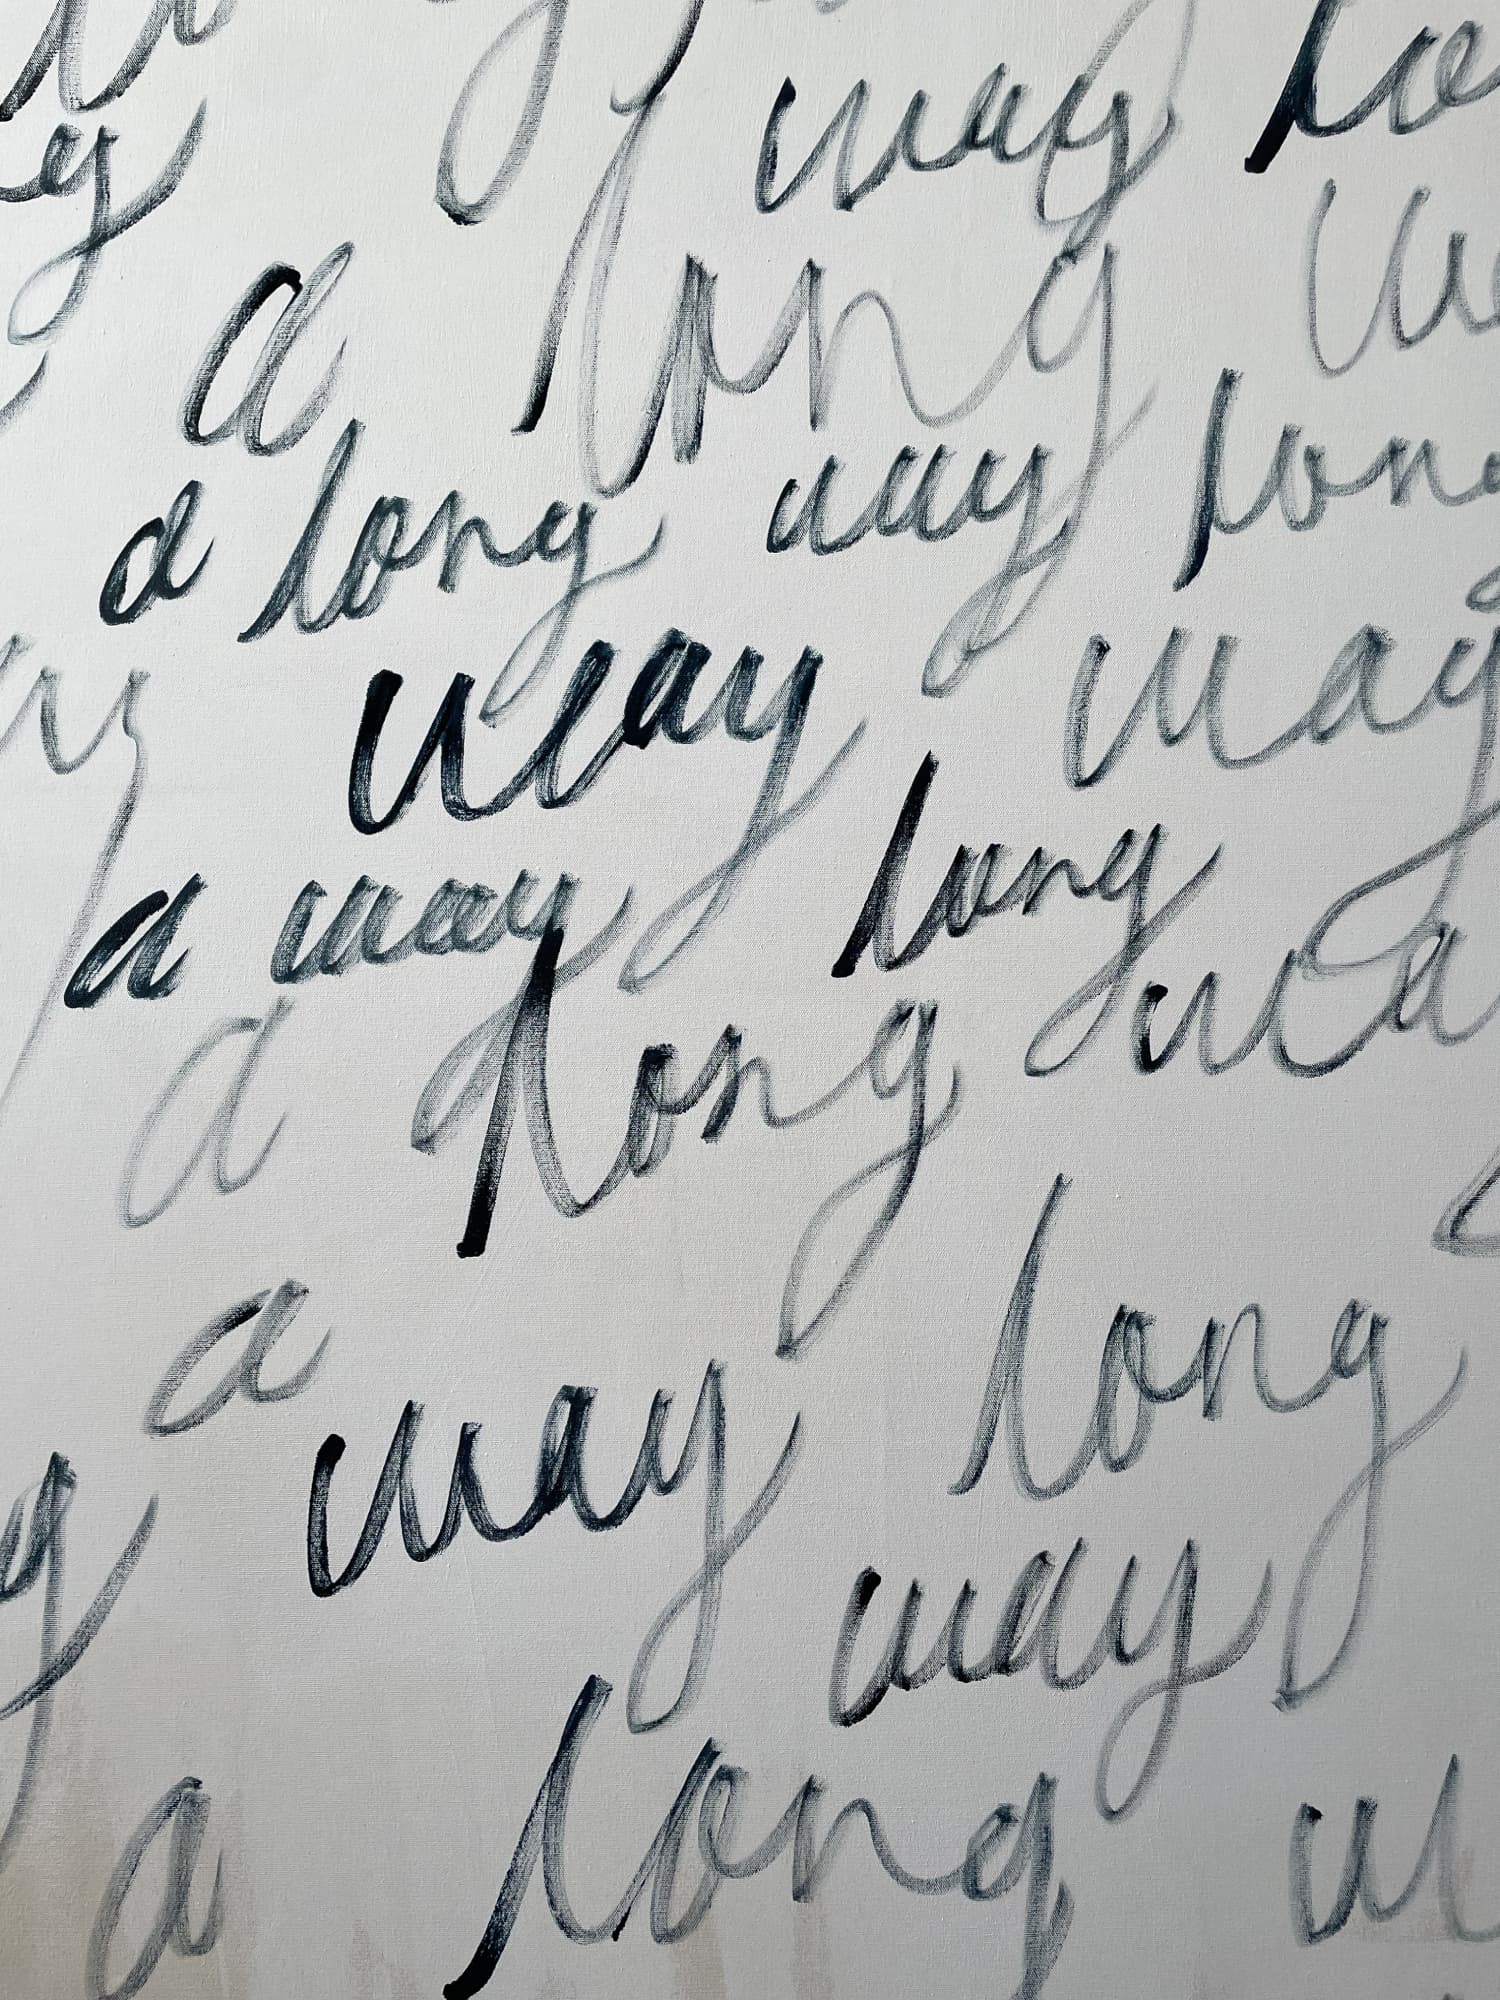 way
a long
a long way long
way way
a way long
a long way
a long
way
way
a long